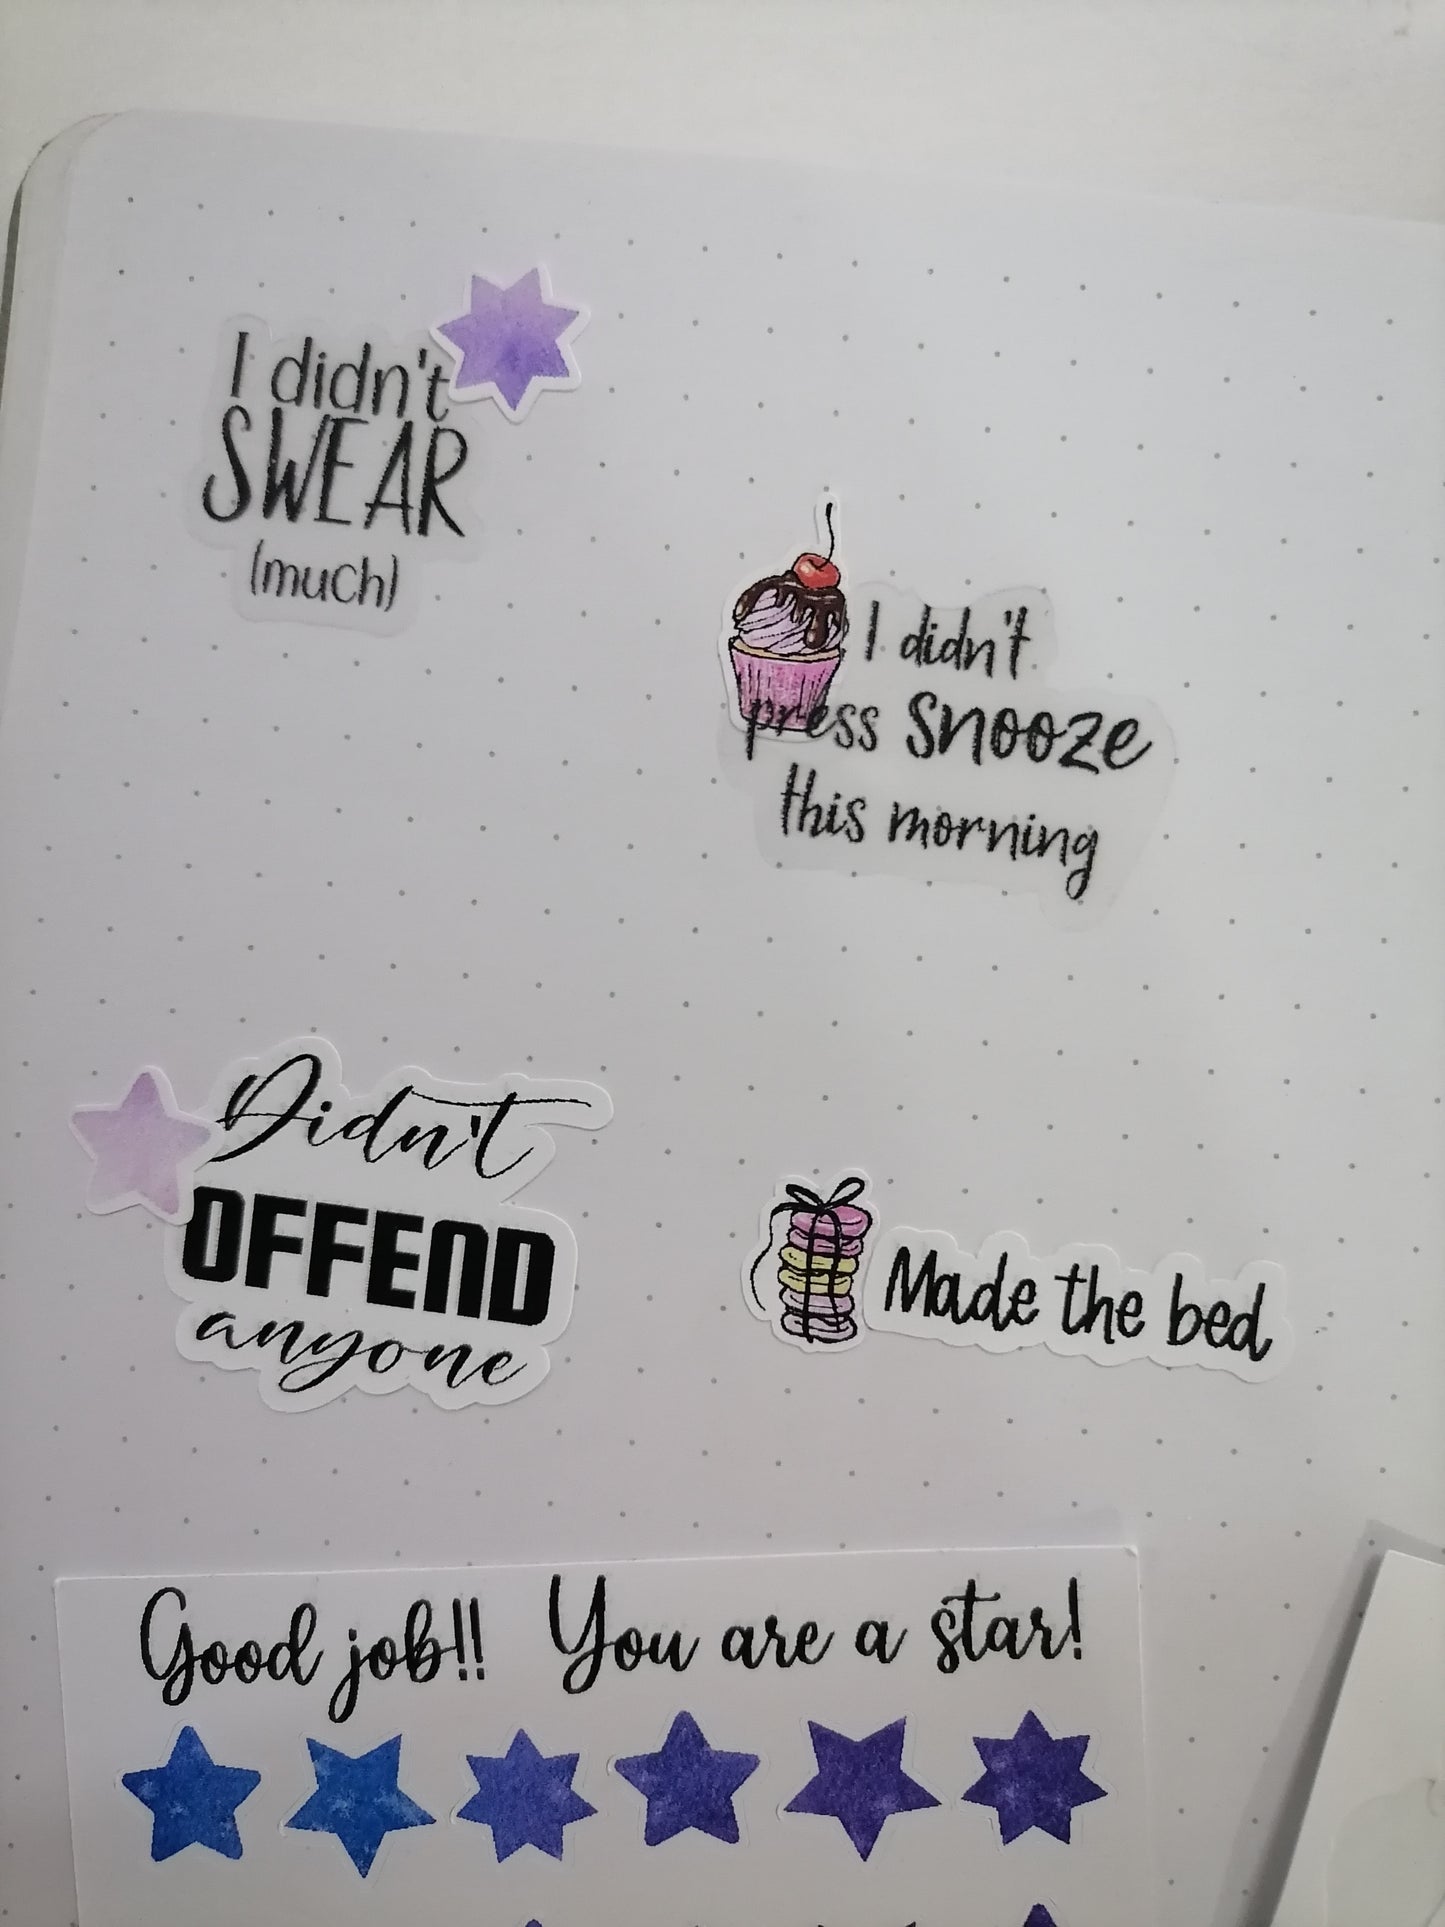 I didn't
SWEAR
(much)
I didn't
press snooze
this morning
Didn't
OFFEND
anyone
Made the bed
Good job!! You are a star!